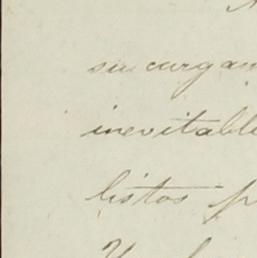 su cargam
inevitable
listos p